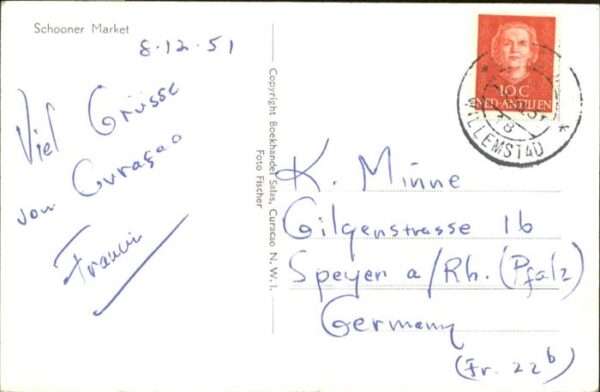 Schooner Market
8.12.51
Viel Grüsse
von Curaçao
Copyright Boekhandel Salas, Curacao N. W. I.
Foto Fischer
10 C
NED. ANTILLEN
WILLEMSTAD
18
K. Minne
Gilgenstrasse 16
Speyer a/Rh. (Pfalz)
Germany
(Fr. 22b)